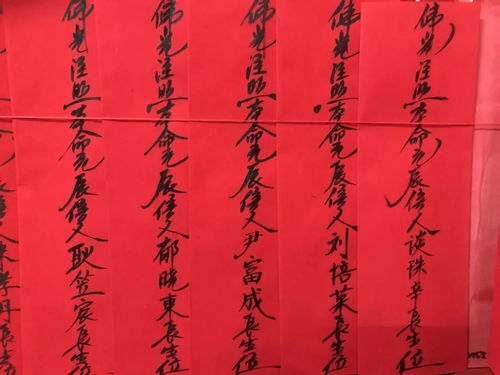 佛光注照本命元辰信人谈珠長生位
佛光注照本命元辰信人刘培長生位
佛光注照本命元辰信人尹富成長生位
佛光注照本命元辰信人郁晓東長生位
佛光注照本命元辰信人耿笠宸長生位